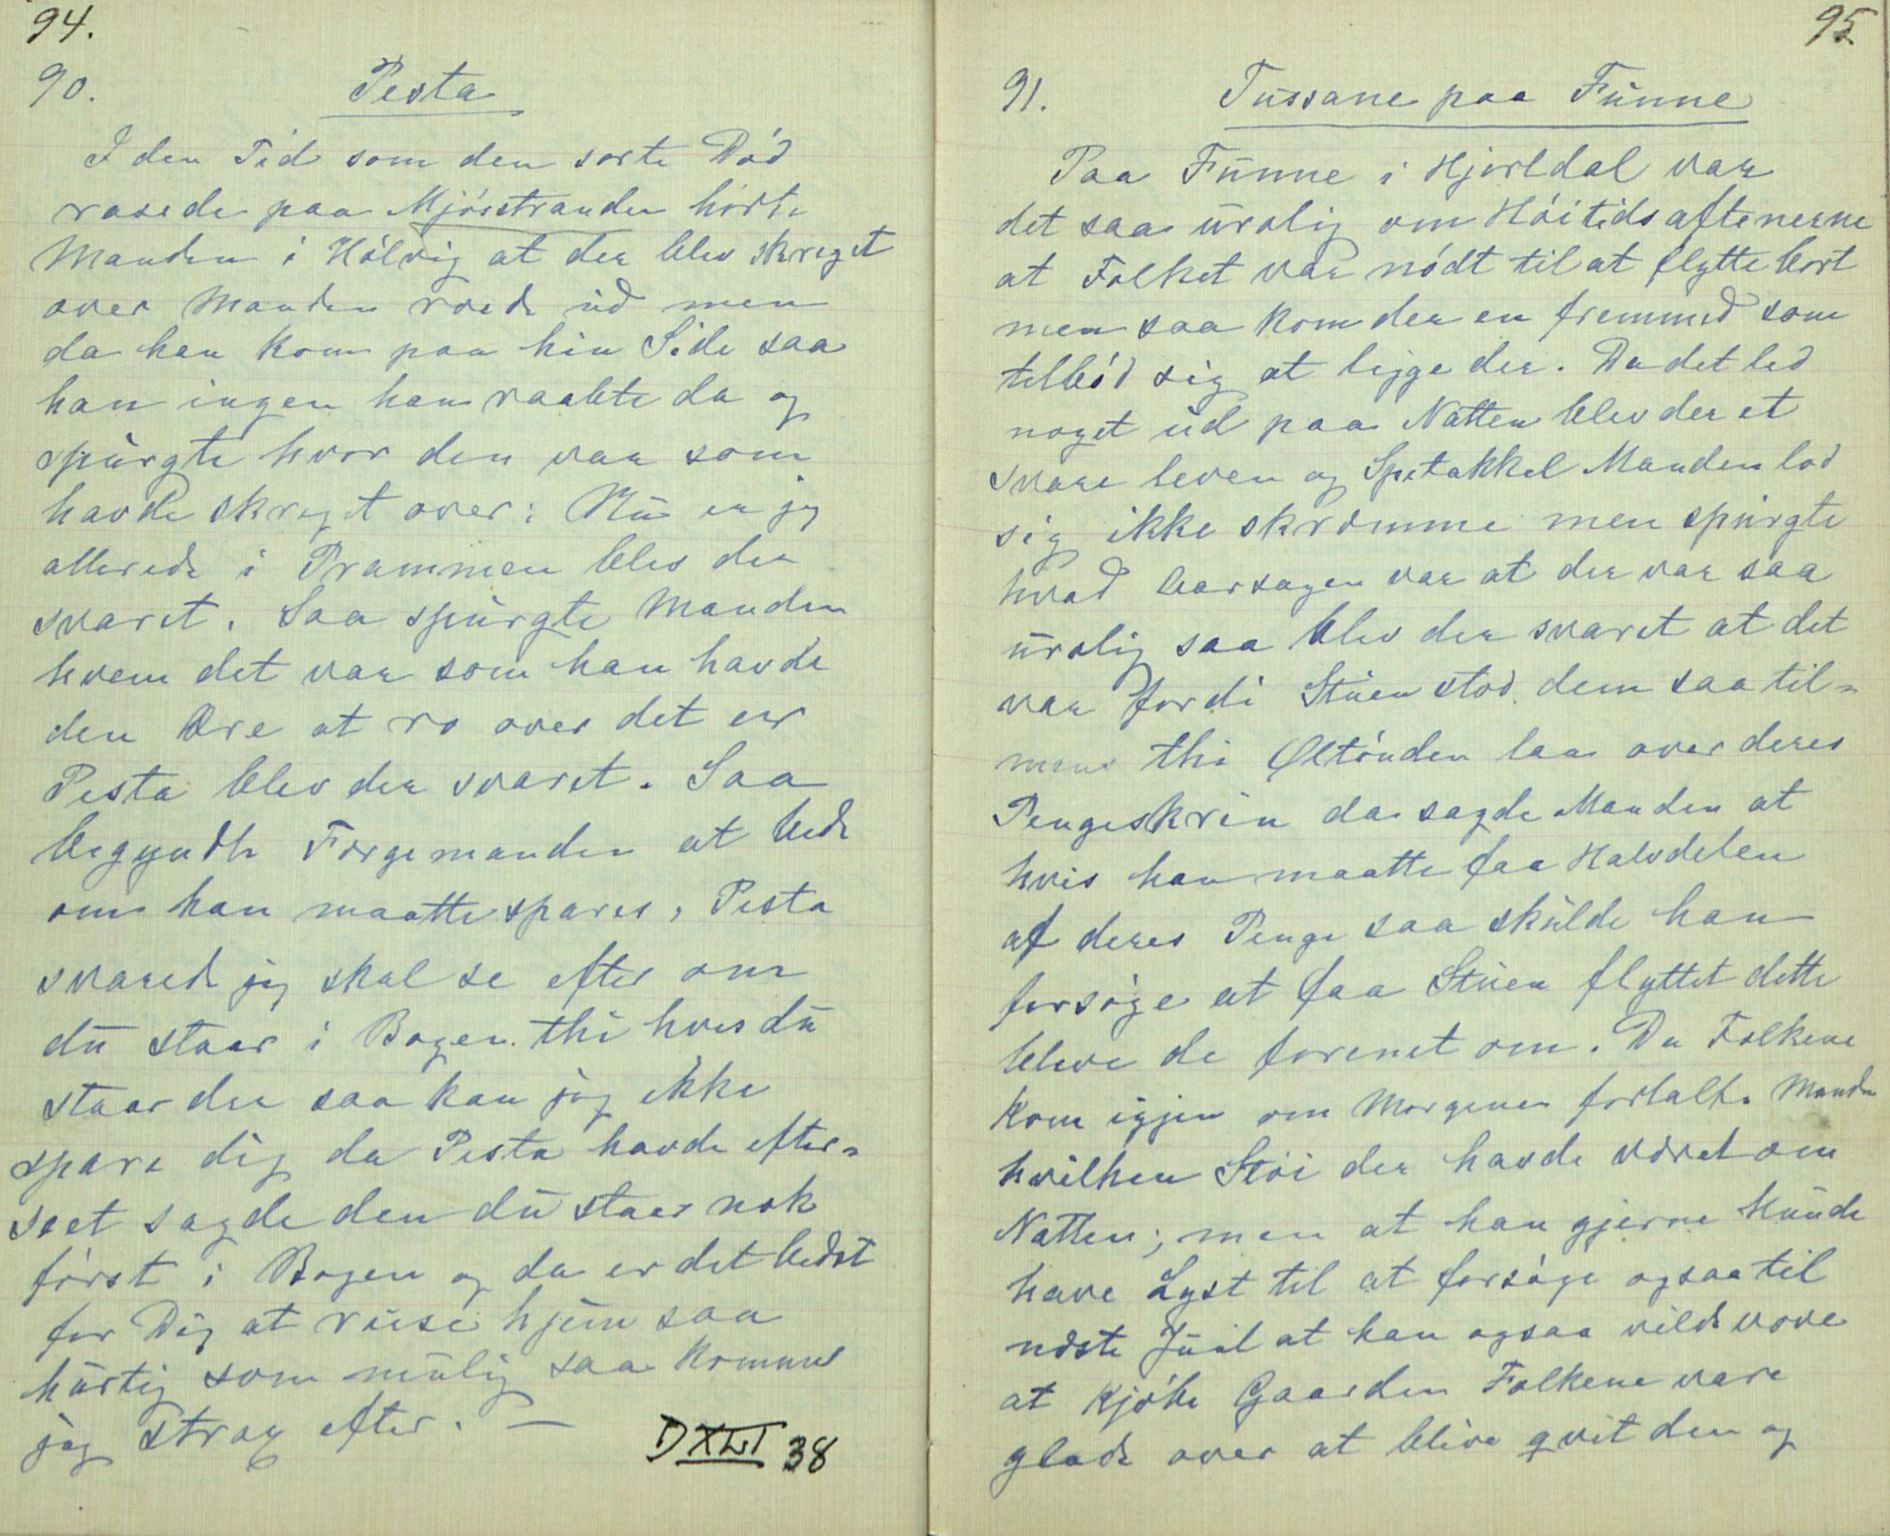 94.
90. Pesta
I den Tid som den sorte Död
rasede paa Mjösstranden hörte
Manden i Hölvig at der blev skreget
over Manden roede ud men
da han kom paa hin Side saa
han ingen han raabte da og
spurgte hvor den var som
havde skreget over: Nu er jeg
allerede i Prammen blev der
svaret. Saa spurgte Manden
hvem det var som han havde
den Ære at ro over det er
Pesta blev der svaret. Saa
begyndte Færgemanden at bede
om han maatte spares, Pesta
svarede jeg skal se efter om
du staar i Bogen thi hvis du
staar der saa kan jeg ikke
spare dig da Pesta havde efter=
seet sagde den du staar nok
först i Bogen og da er det bedst
for Dig at reise hjem saa
hurtig som mulig saa kommer
jeg strax efter. —
DXLI 38
95
91. Tussane paa Funne
Paa Funne i Hjertdal var
det saa urolig om Höitidsaftenerne
at Folket var nödt til at flytte bort
men saa kom der en fremmed som
tilböd sig at ligge der. Da det led
noget ud paa Natten blev der et
svare leven og Spetakkel Manden lod
sig ikke skræmme men spurgte
hvad Aarsagen var at der var saa
urolig saa blev der svaret at det
var fordi Stuen stod dem saa til=
mens thi Öltönden laa over deres
Pengeskrin da sagde Manden at
hvis han maatte faa Halvdelen
af deres Penge saa skulde han
forsöge at faa Stuen flyttet dette
bleve de forenet om. Da Folkene
kom igjen om Morgenen fortalte Manden
hvilken Stöi der havde været om
Natten; men at han gjerne kunde
have Lyst til at forsöge ogsaa til
næste Juul at han ogsaa vilde vove
at kjöbe Gaarden Folkene vare
glade over at blive qvit den og